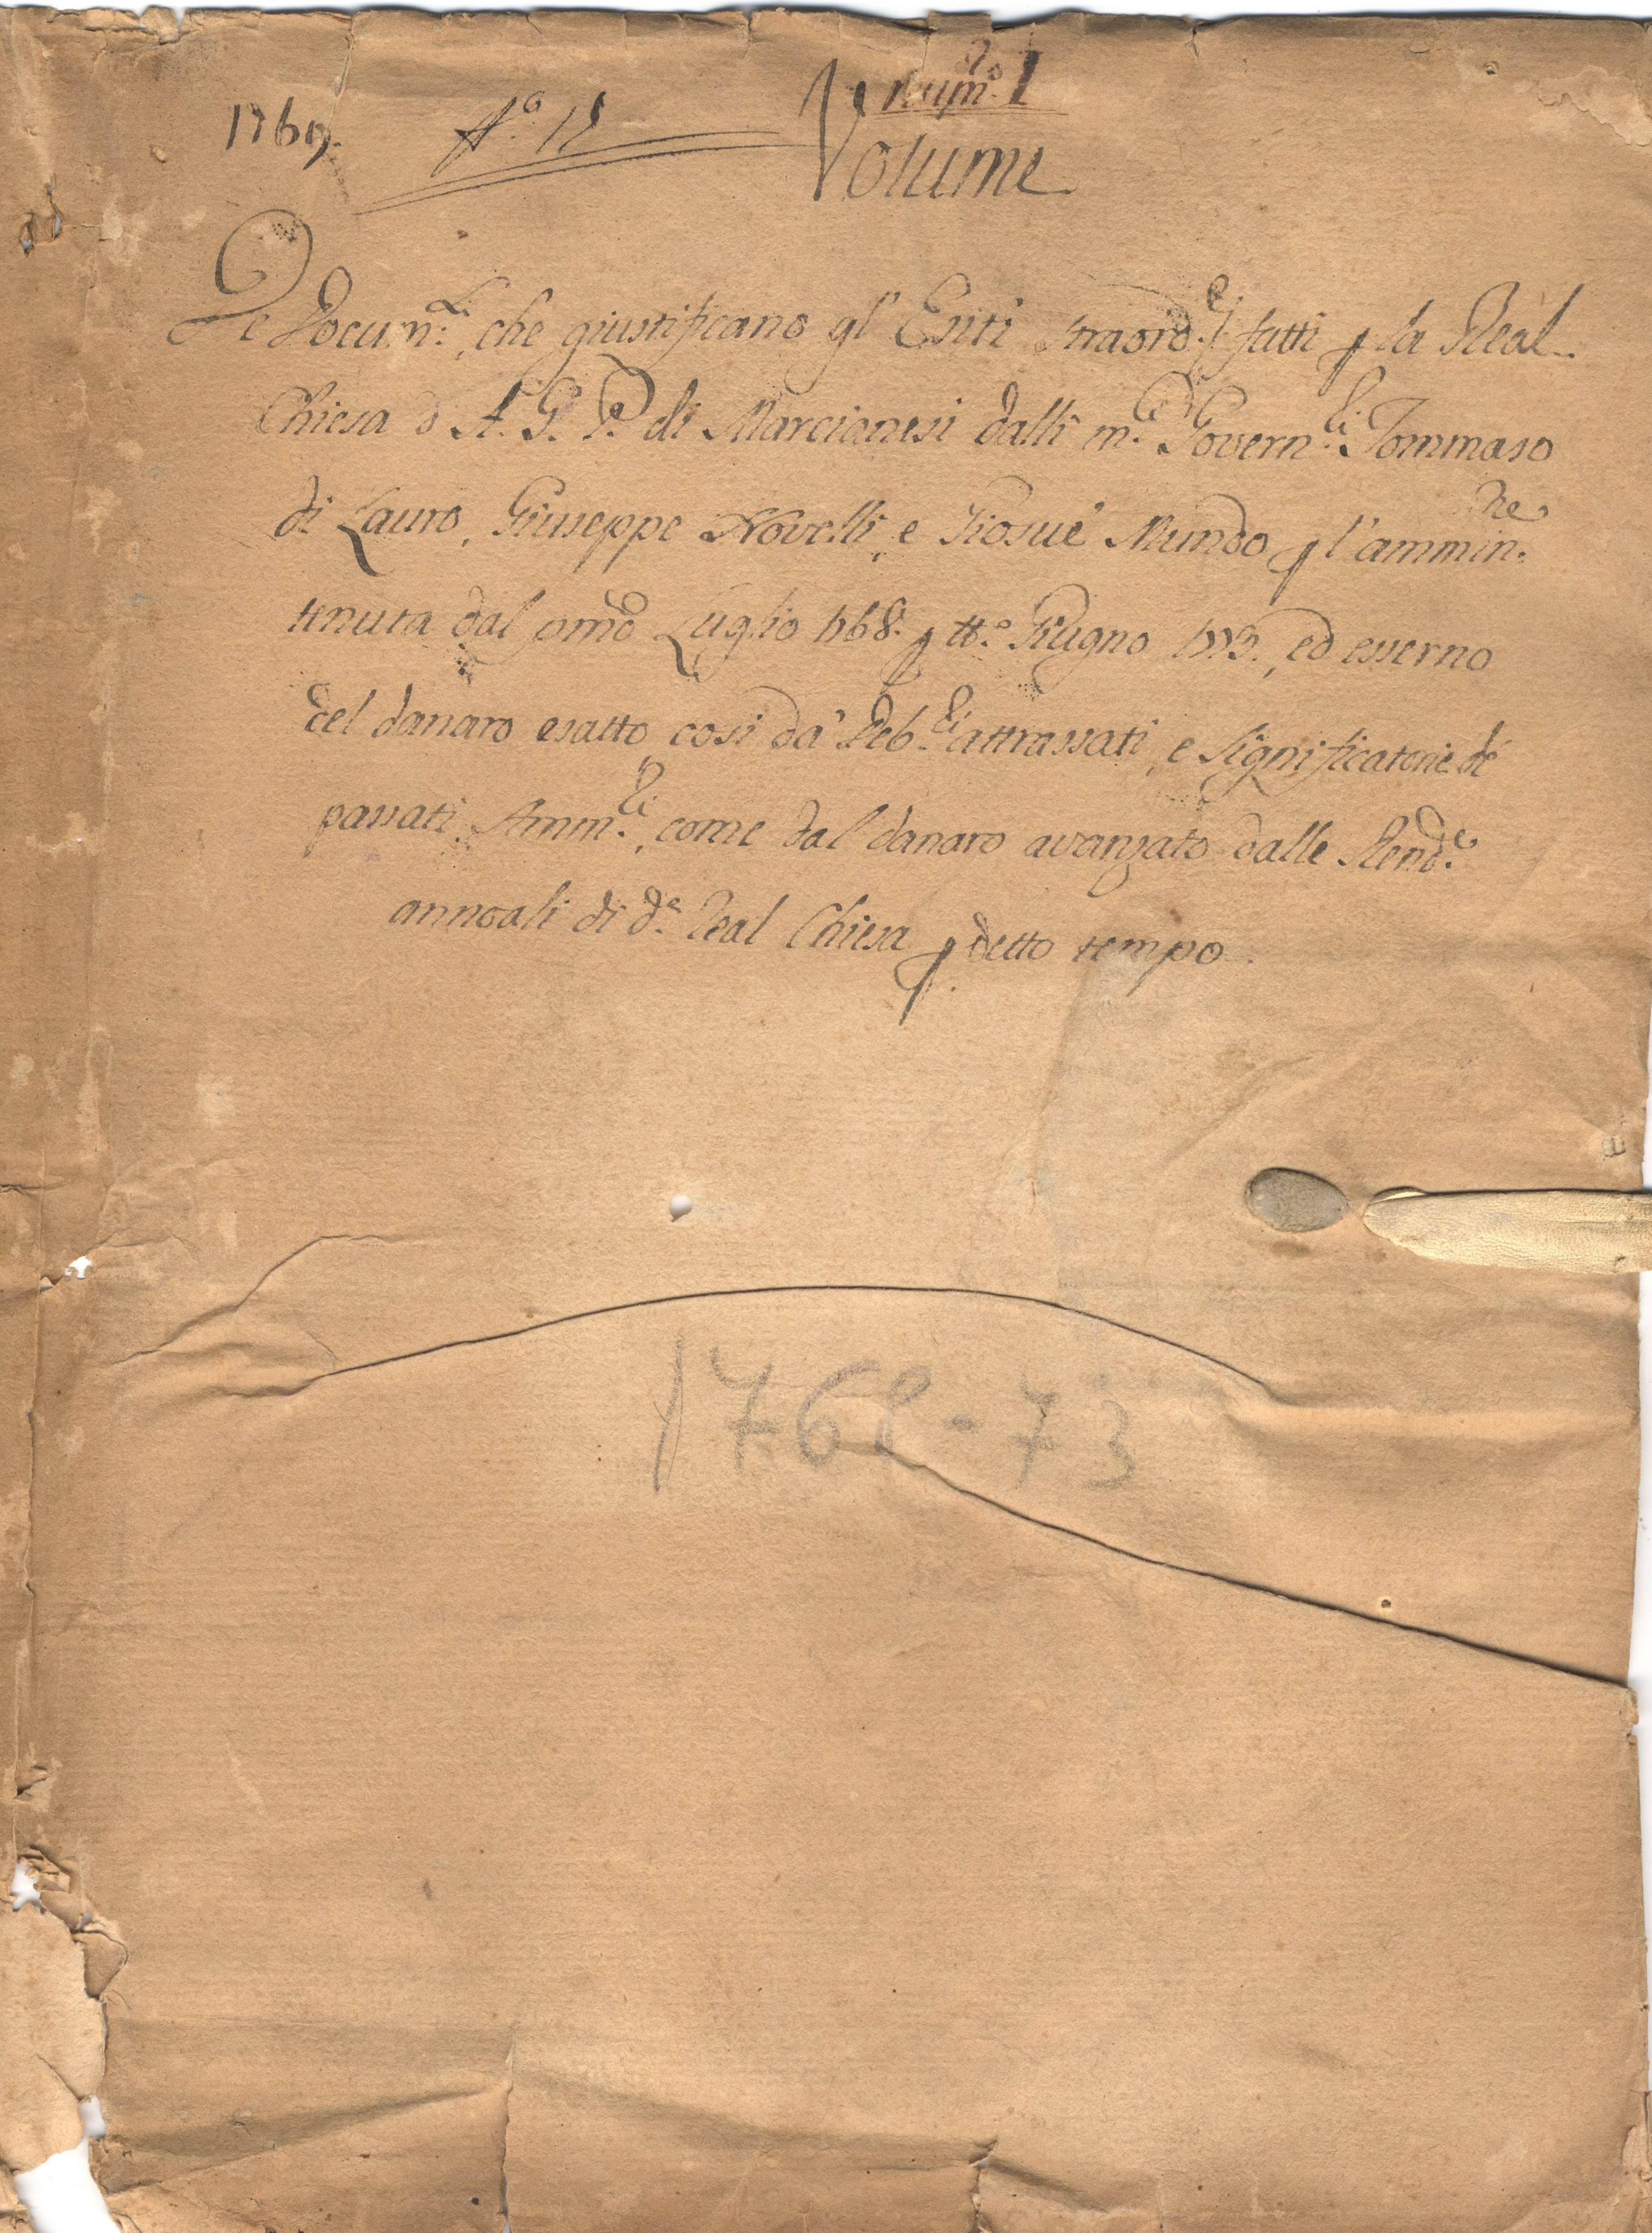 1769. N.º 12 Num.º I
Volume
De Docum.ti, che giustificano gl' Esiti straord.rj fatti p la Real
Chiesa d A. G. P. di Marcianesi dalli m.ci Govern.ri Tommaso
di Lauro, Giuseppe Novelli, e Giosuè Mundo p l'ammin.ne
tenuta dal pmo Luglio 1768. p tt.º Giugno 1773., ed esserno
del danaro esatto così da' Deb.ri attrassati, e Significatorie de'
passati Amm.ri, come dal danaro avanzato dalle Rend.e
annoali di d.a Real Chiesa p detto tempo.
1768-73